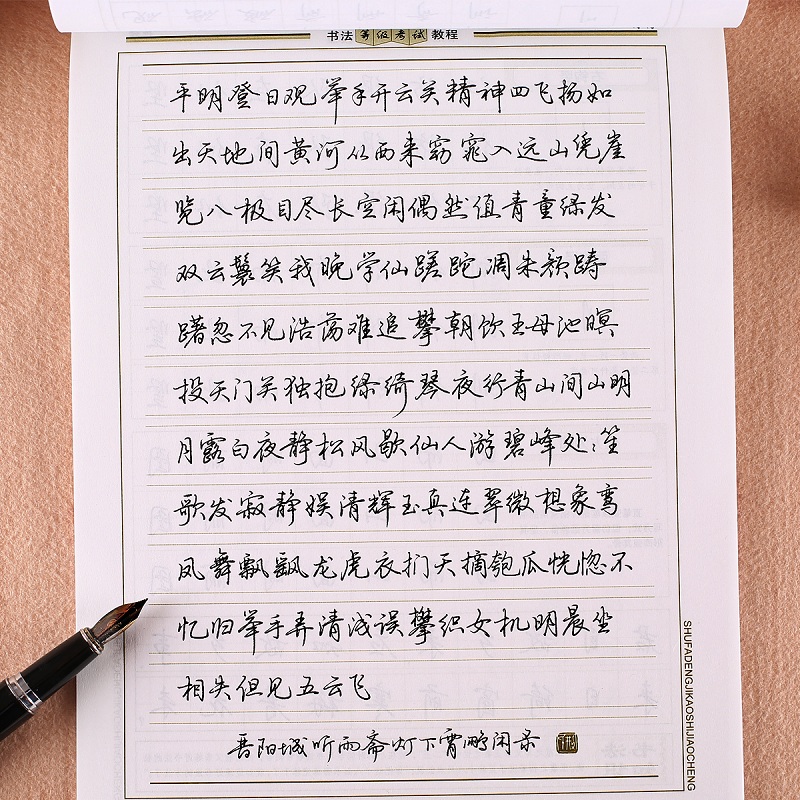 书法等级考试教程
平明登日观举手开云关精神四飞扬如
出天地间黄河从西来窈窕入远山凭崖
览八极目尽长空闲偶然值青童绿发
双云鬟笑我晚学仙蹉跎凋朱颜踌
躇忽不见浩荡难追攀朝饮王母池暝
投天门关独抱绿绮琴夜行青山间山明
月露白夜静松风歇仙人游碧峰处处笙
歌发寂静娱清辉玉真连翠微想象鸾
凤舞飘飖龙虎衣扪天摘匏瓜恍惚不
忆归举手弄清浅误攀织女机明晨坐
相失但见五云飞
晋阳城听雨斋灯下霄鹏闲录
SHUFADENGJIKAOSHIJIAOCHENG